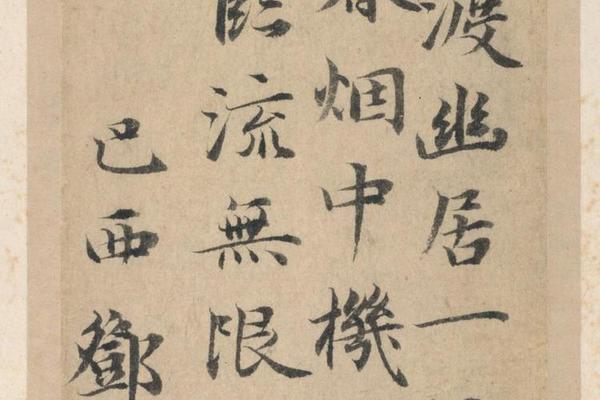 渡幽居一
烟中機
臨流無限
己酉鄧